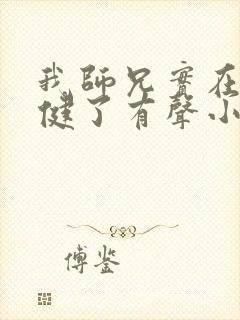 我師兄實在
健了有聲小
傅鉴